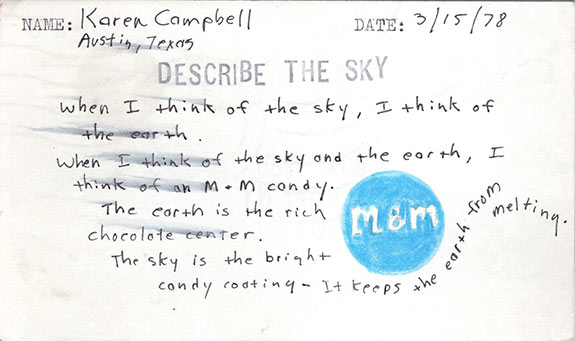 NAME: Karen Campbell DATE: 3/15/78
Austin, Texas
DESCRIBE THE SKY
When I think of the sky, I think of
the earth.
When I think of the sky and the earth, I
think of an M+M candy.
The earth is the rich
chocolate center.
M&M
The sky is the bright
candy coating - It keeps the earth from melting.